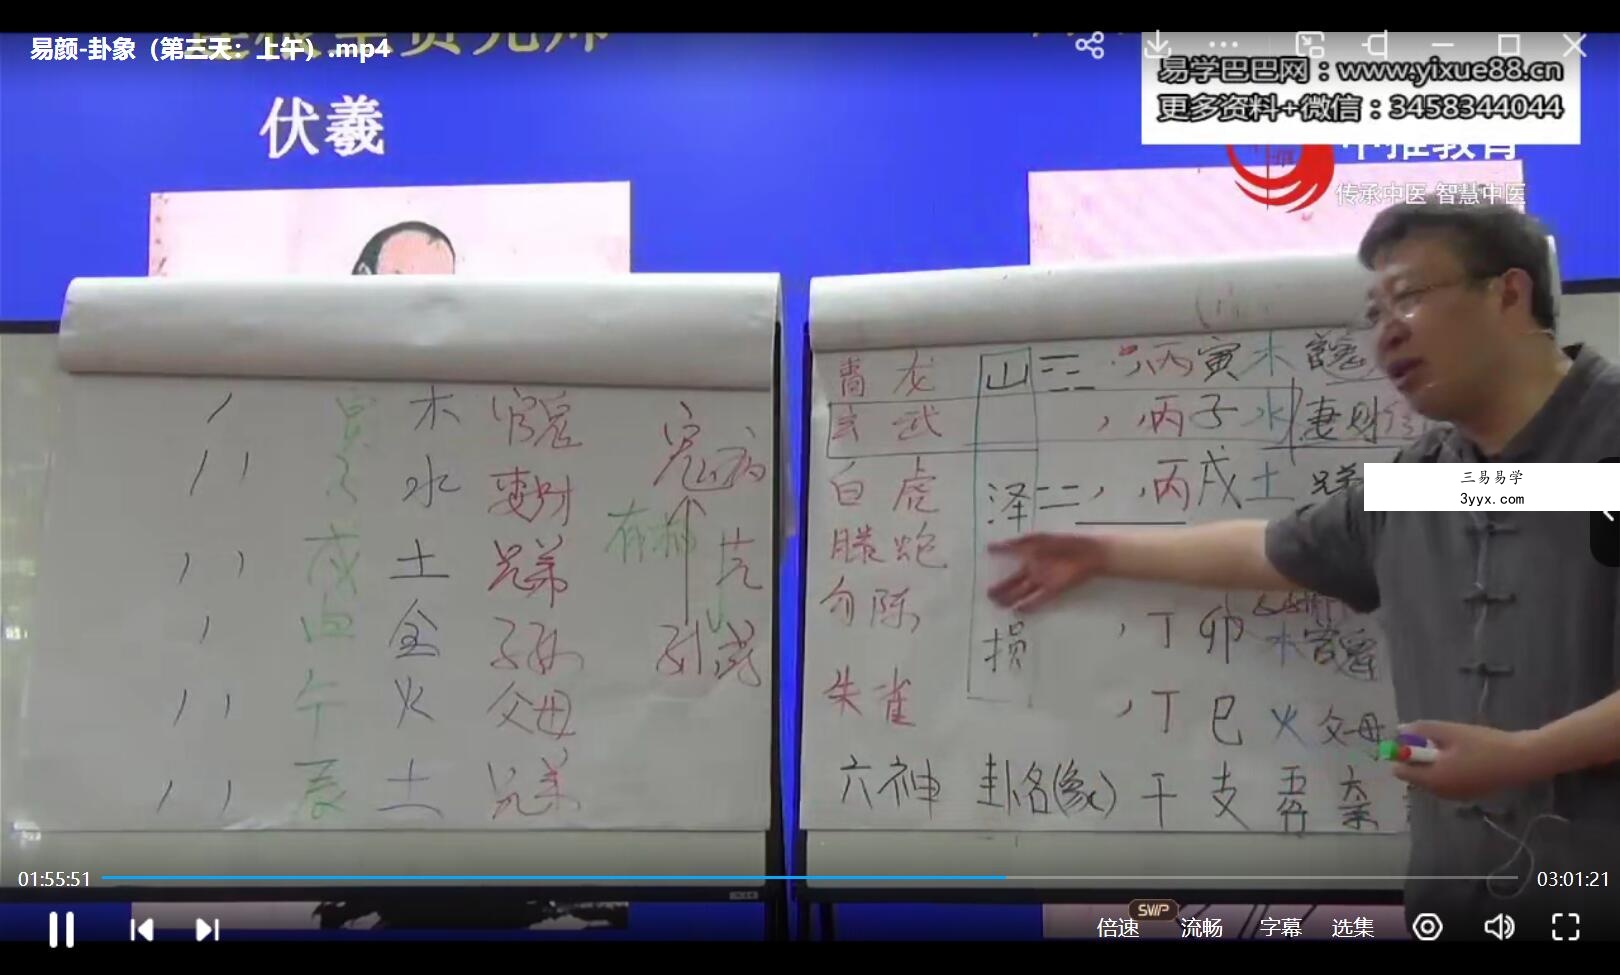 易颜-卦象（第三天：上午）.mp4
易学巴巴网：www.yixue88.cn
更多资料+微信：3458344044
伏羲
中推教育
传承中医 智慧中医
木 官鬼
子 水 妻财
戌 土 兄弟
金 子孙
午 火 父母
辰 土 兄弟
鬼 病
青龙 山 丙寅木 官鬼
玄武 丙子水 妻财
白虎 泽 丙戌土 兄弟
螣蛇
勾陈 损 丁卯木官鬼
朱雀 丁巳火父母
六神 卦名(象) 干 支 五行 六亲
三易易学
3yyx.com
01:55:51
03:01:21
倍速
SVIP
流畅
字幕
选集